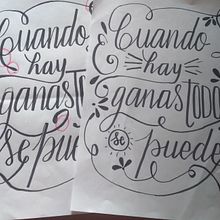 Cuando
hay
ganas TODO
se pue
Cuando
hay
ganas TODO
se puede